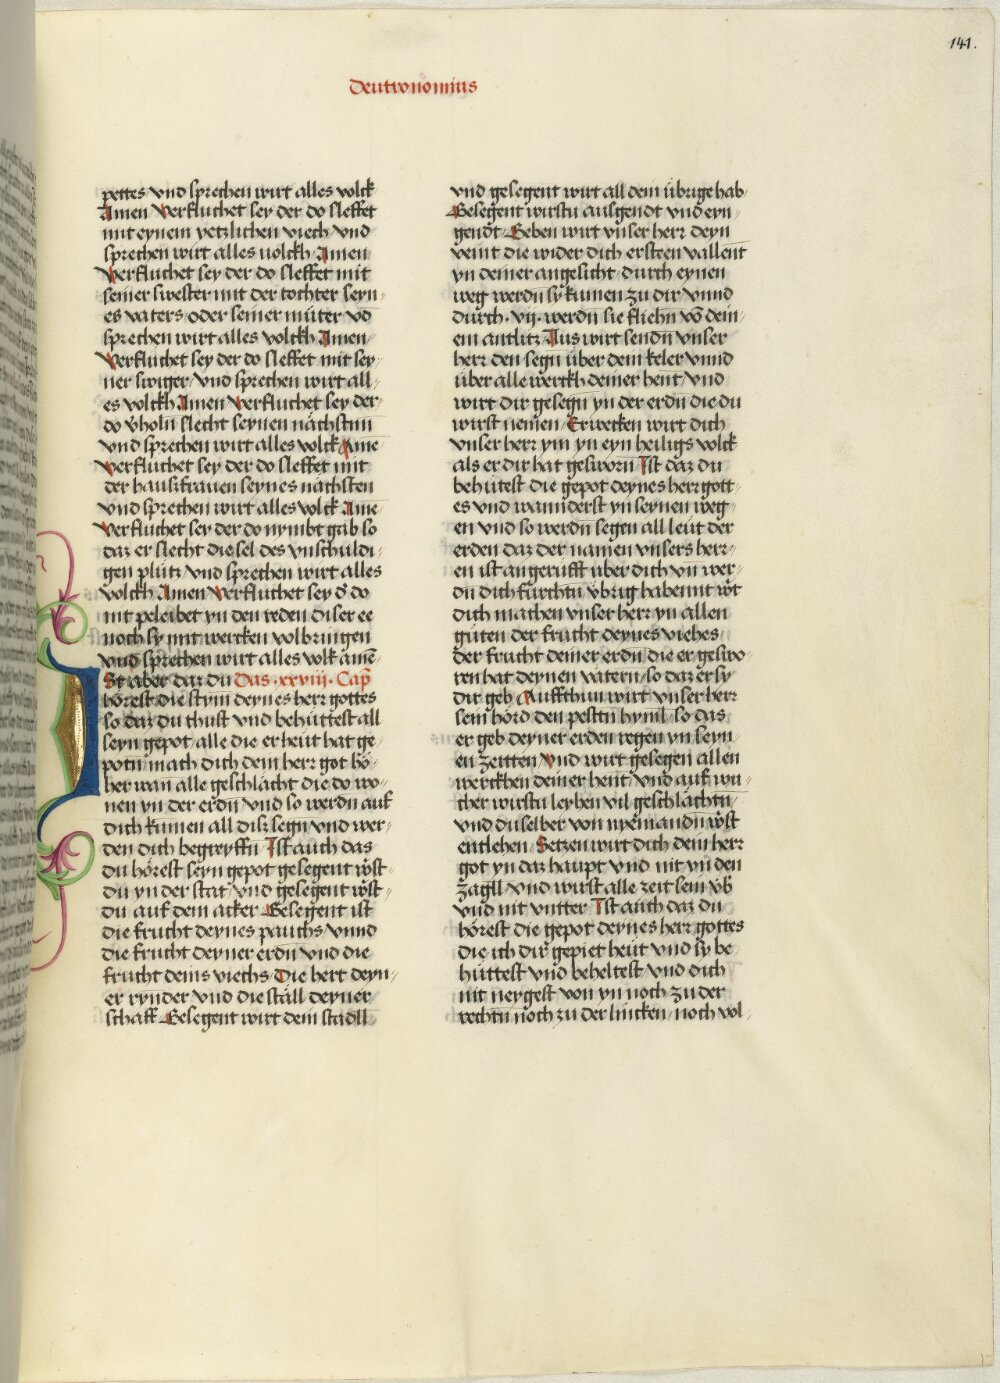 141.
Deutronomius
pettes vnd sprechen wirt alles volck
Amen Verfluchet sey der do sleffet
mit eynem yetzlichen viech vnd
sprechen wirt alles uolckh Amen
Verfluchet sey der do sleffet mit
seiner swester mit der tochter seyn-
es vaters oder seiner müter vō
sprechen wirt alles volckh Amen
Verfluchet sey der do sleffet mit sey-
ner swiger vnd sprechen wirt all-
es volckh Amen Verfluchet sey der-
do v̄holn slecht seynen nächstnn
vnd sprechen wirt alles volck Ame-
Verfluchet sey der do sleffet mit
der hauszfrauen seynes nächsten
vnd sprechen wirt alles volck Ame-
Verfluchet sey der do nymbt gab so
daz er slecht die sel des vnschuldi-
gen plutz vnd sprechen wirt alles
volckh Amen Verfluchet sey d̄ do
nit peleibet yn den reden diser ee
noch sy mit wercken volbringen
vnd sprechen wirt alles volk amē
St aber daz du Das .xxviij. Cap̄
hörest die stym deynes herr gottes
so daz du thust vnd behüttest all
seyn gepot alle die er heut hat ge-
potn mach dich dein herr got hö-
her wan alle geschlächt die do wo-
nen yn der erdn̄ vnd so werdn auf
dich kumen all disz segn vnd wer-
den dich begreyffn Ist auch das
du hörest seyn gepot gesegent w̄st-
du yn der stat vnd gesegent w̄st-
du auf dem acker Gesegent ist
die frucht deynes pauchs vnnd
die frucht deyner erdn̄ vnd die
frucht deins viechs Die hert deyn-
er rynder vnd die ställ deyner
schaff Gesegent wirt dein stadll
vnd gesegent wirt all dein übrige hab
Gesegent wirstu ausgendt vnd eyn-
gendt Geben wirt vnser herr deyn
veint die wider dich ersteen vallent
yn deiner angesicht durch eynen
weg werdn sy kumen zu dir vnnd
durch .vij. werdn sie fliehn vō dein-
em antlitz Aus wirt sendn vnser
herr den segn über dein keler vnnd
über alle werckh deiner hent vnd
wirt dir gesegn yn der erdn die du
wirst nemen Erwecken wirt dich
vnser herr ym yn eyn heiligs volck
als er dir hat gesworn Ist daz du
behütest die gepot deynes herr gott-
es vnd wannderst yn seynen weg-
en vnd so werdn segen all leut der
erden daz der namen vnsers herr-
en ist angerufft über dich vn̄ wer-
dn dich fürchtn übrig haben mit w̄t
dich machen vnser herr yn allen
güten der frucht deynes viehes
der frucht deiner erdn die er geswo-
ren hat deynen vätern so daz er sy
dir geb Auffthun wirt vnser herr
sein hörd den pestn hyml so das
er geb deyner erden regen yn seyn
en zeitten vnd wirt gesegen allen
werckhen deiner hent vnd auf wu-
cher wirstu leyhen vil geschlächtn
vnd du selber von nyemandn w̄st
entlehen Setzen wirt dich dein herr
got yn daz haupt vnd nit yn den
zagll vnd wirst alle zeit sein ōb
vnd nit vntter Ist auch daz du
hörest die gepot deynes herr gottes
die ich dir gepiet heut vnd sy be
hüttest vnd beheltest vnd dich
nit neygest von yn noch zu der
rechtn noch zu der lincken noch vol-